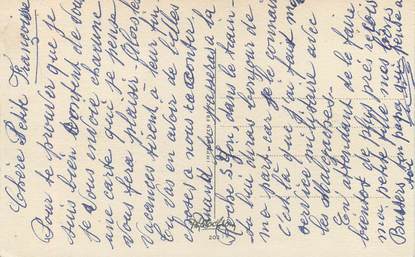 Chère Petite Françoise
Pour te prouver que je
suis bien content de vous
je vous envoie chacune
une carte qui je pense
vous fera plaisir. Alors, les
vacances tirent à leur fin
tu vas en avoir de belles
choses à nous raconter.
Quand tu passeras la
Roche S/Yon, dans le train
tu lui diras bonjour de
ma part, car je le connais
c'est là que j'ai fait mon
service militaire avec
les Malgaches.
En attendant de le faire
bientôt de plus près reçois
ma petite fille mes
Baisers ton papa